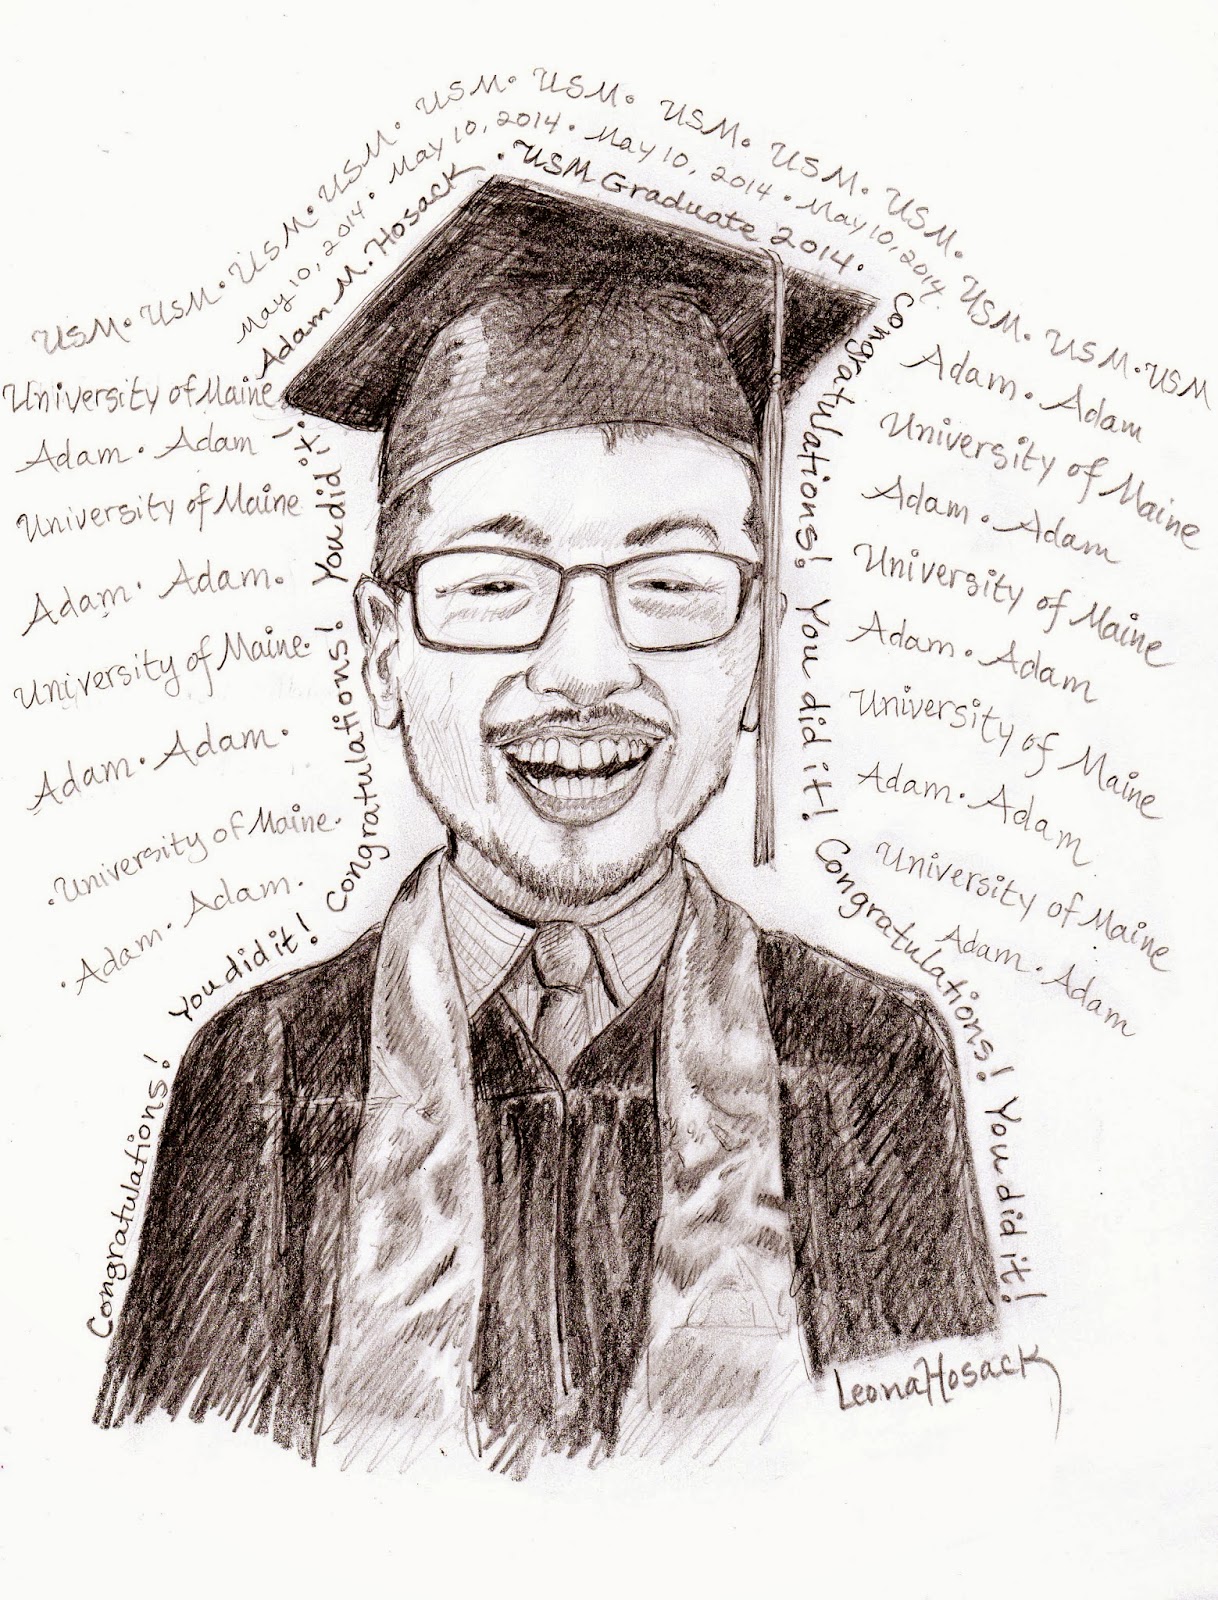 USM. USM. USM. USM. USM. USM. USM. USM. USM. USM. USM. USM
May 10, 2014. May 10, 2014. May 10, 2014. May 10, 2014.
Adam M. Hosack. USM Graduate 2014.
University of Maine
Adam. Adam
University of Maine
Adam. Adam.
University of Maine.
Adam. Adam.
. University of Maine.
. Adam. Adam.
Congratulations! You did it! Congratulations! You did it!
Congratulations! You did it! Congratulations! You did it!
Adam. Adam
University of Maine
Adam. Adam
University of Maine
Adam. Adam
University of Maine
Adam. Adam
University of Maine
Adam. Adam
Leona Hosack